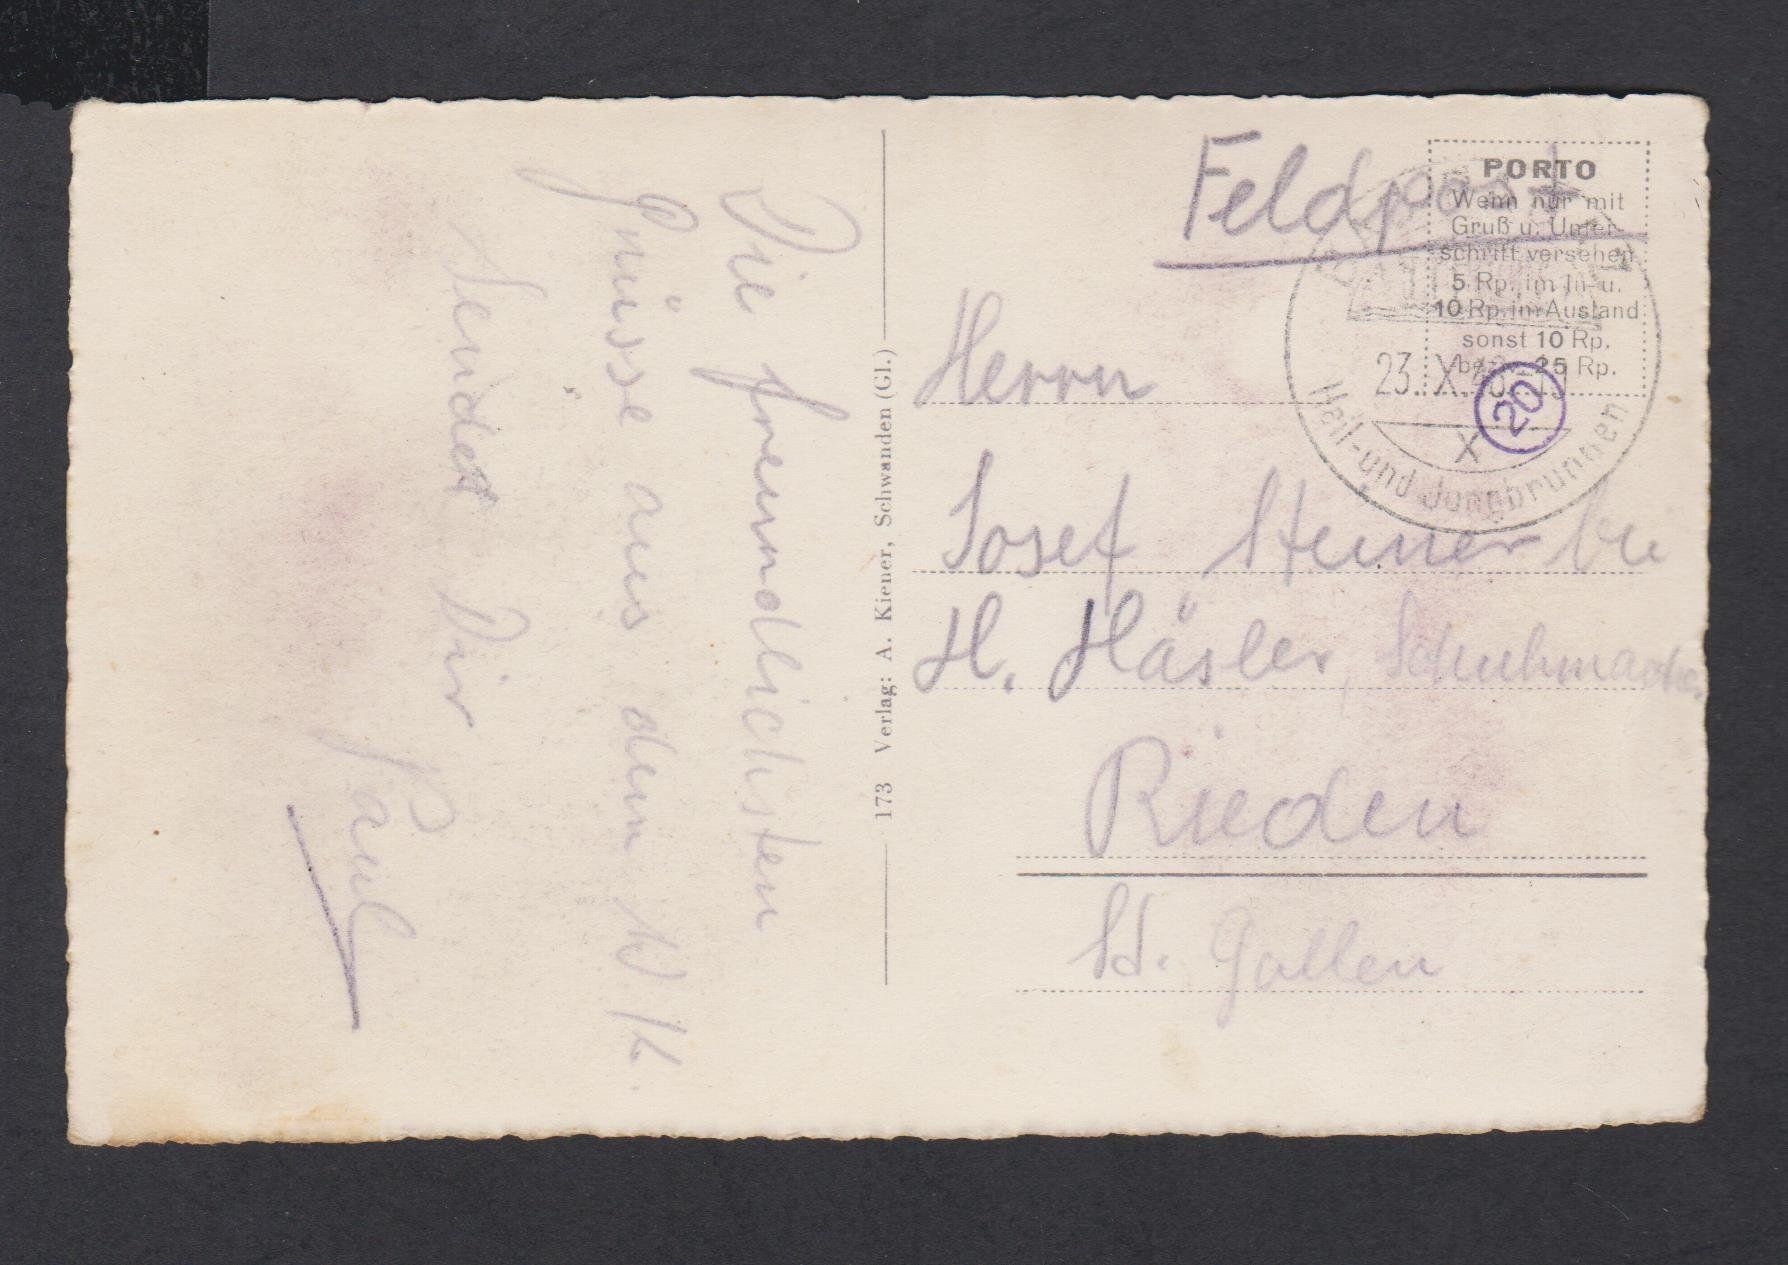 Die freundlichsten
Grüsse aus dem W.K.
sendet Dir
Paul
173 Verlag: A. Kiener, Schwanden (Gl.)
Feldpost
PORTO
Wenn nur mit
Gruß u. Unter-
schrift versehen
5 Rp. im In- u.
10 Rp. im Ausland
sonst 10 Rp.
bezw. 25 Rp.
23. X.
X
Heil- und Jungbrunnen
20
Herrn
Josef Steiner bei
H. Häsler, Schuhmacher
Rieden
St. Gallen